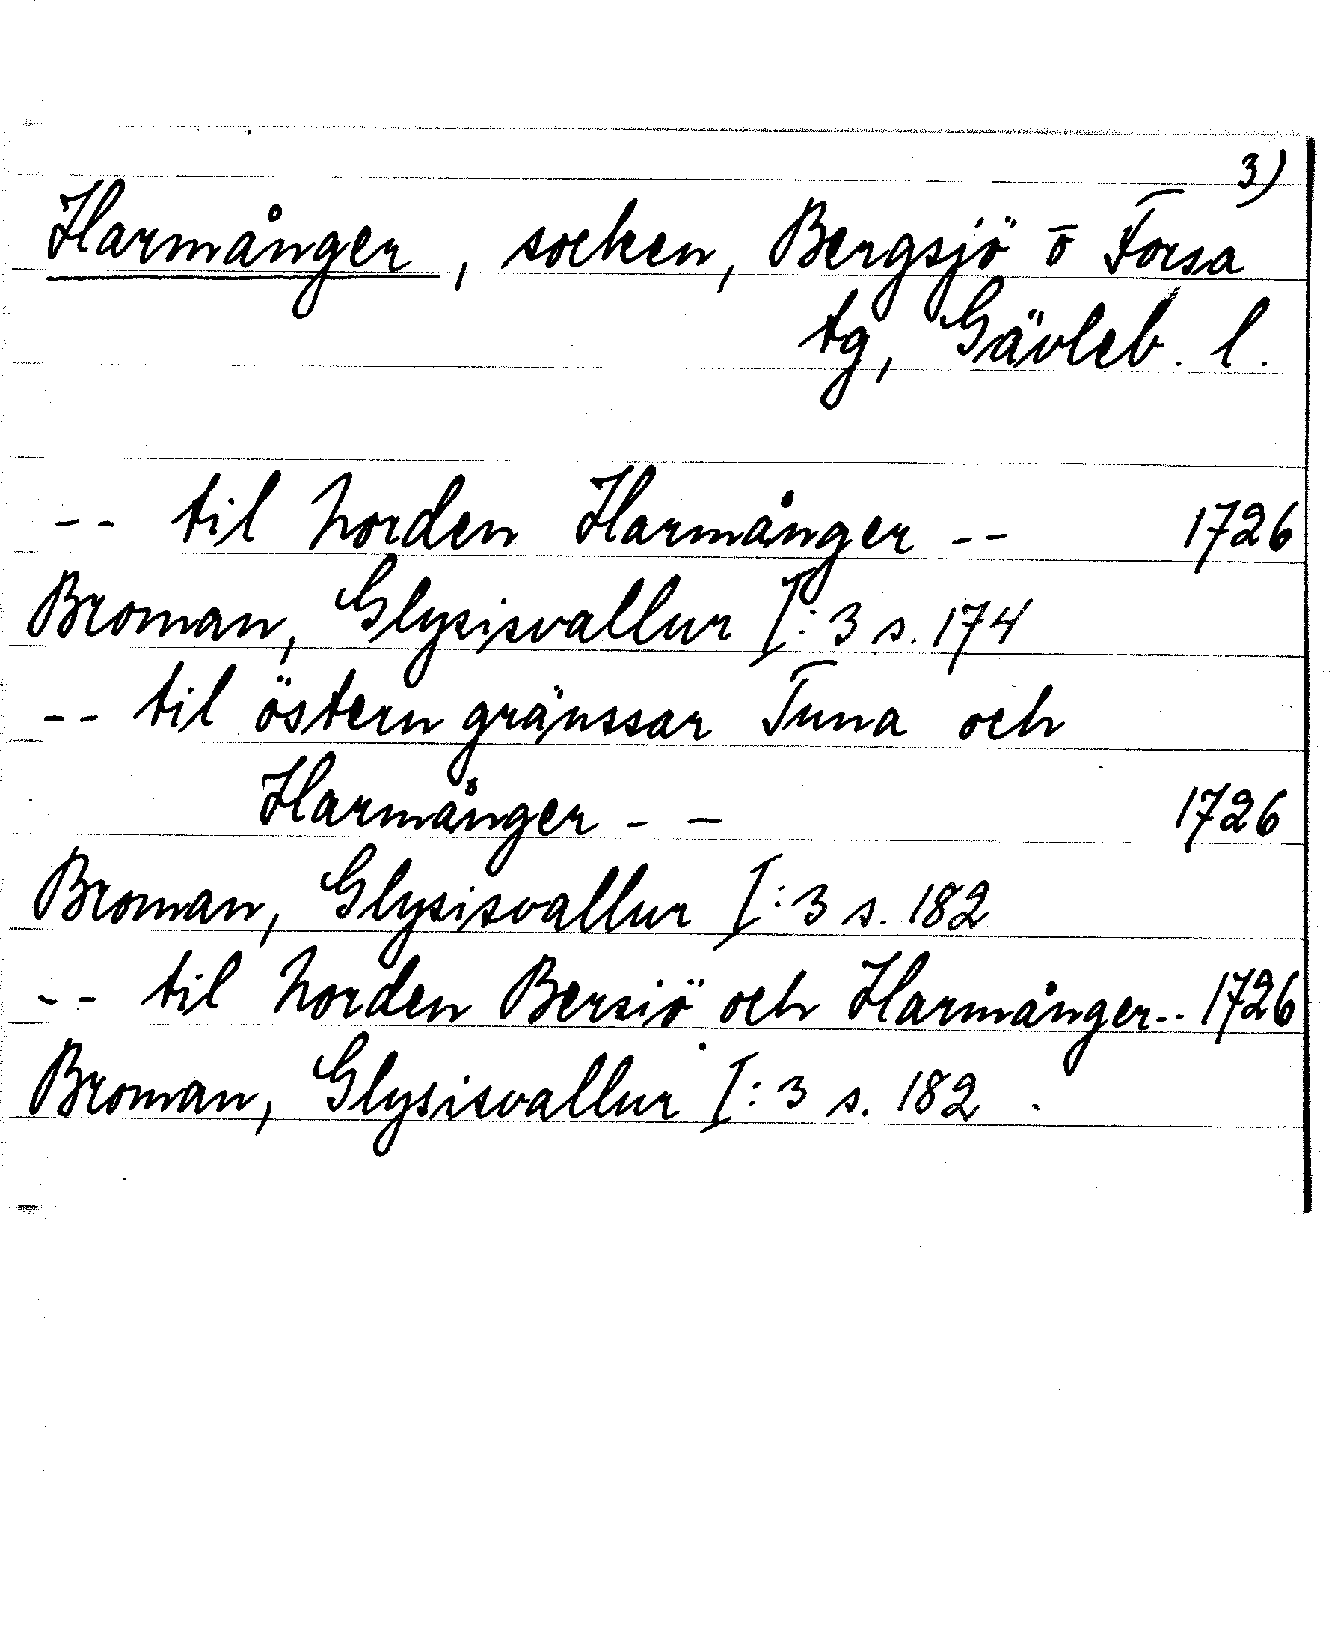 3)
Harmånger, socken, Bergsjö o Forsa
tg, Gävleb. l.
-- til Norden Harmånger -- 1726
Broman, Glysisvallur I:3 s. 174
-- til östern gränssar Tuna och
Harmånger -- 1726
Broman, Glysisvallur I:3 s. 182
-- til Norden Bersiö och Harmånger-- 1726
Broman, Glysisvallur I:3 s. 182